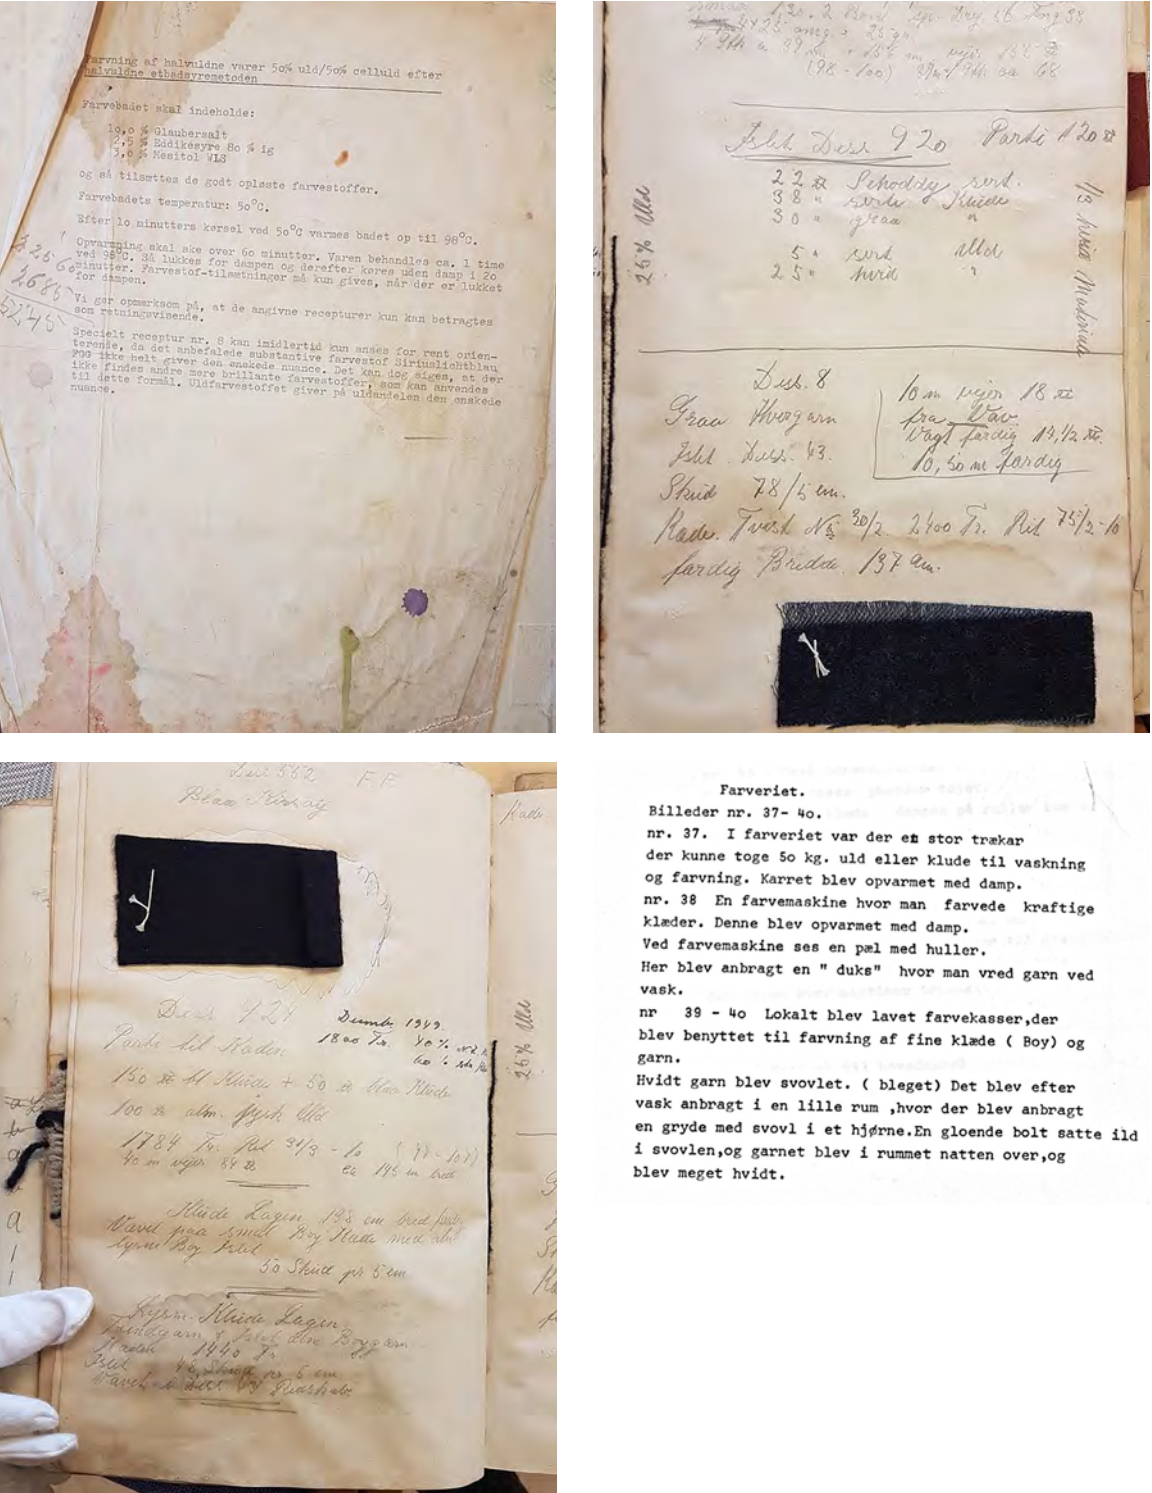 Farvning af halvuldne varer 50% uld/50% celluld efter
halvuldne etbadsyremetoden
Farvebadet skal indeholde:
10,0 % Glaubersalt
2,5 % Eddikesyre 80 % ig
3,0 % Mesitol WLS
og så tilsættes de godt opløste farvestoffer.
Farvebadets temperatur: 50°C.
Efter 10 minutters kørsel ved 50°C varmes badet op til 98°C.
Opvarmning skal ske over 60 minutter. Varen behandles ca. 1 time
ved 98°C. Så lukkes for dampen og derefter køres uden damp i 20
minutter. Farvestof-tilsætninger må kun gives, når der er lukket
for dampen.
Vi gør opmærksom på, at de angivne recepturer kun kan betragtes
som retningsvisende.
Specielt receptur nr. 8 kan imidlertid kun anses for rent orien-
terende, da det anbefalede substantive farvestof Siriuslichtblau
FGG ikke helt giver den ønskede nuance. Det kan dog siges, at der
ikke findes andre mere brillante farvestoffer, som kan anvendes
til dette formål. Uldfarvestoffet giver på uldandelen den ønskede
nuance.
2685
5245
Islet Diss 920 Parti 120
22 Schoddy svrt.
38 " svrte Klude
30 " graa "
5 " svrt Uld
25 " hvid "
25% Uld
1/3 hvid Materiale
Diss. 8
Graa Hvergarn
Islet Diss. 43.
Skud 78/5 cm.
Kade. Tvist No 30/2 2400 Tr. Rit 75/2-10
færdig Bredde. 137 cm.
10 m vejer 18
fra Væv
Vægt færdig 14,1/2
10,50 m færdig
Diss 562 F.F.
Blaa Kirsey
Diss 424
Decmbr 1949.
1800 Tr. 40%
60%
Parti til Kaden
150 bl Klude + 50 blaa Klude
100 alm. jysk Uld
1784 Tr. Rit 90/3 - 10
40 m vejer 84 ca 145 m bred
25% Uld
Kade
Klude Lagen 138 cm bred færdi
Vævet paa smal Boy Kade med alm
lysm Boy Islet
50 Skud pr 5 cm
Lysm. Klude Lagen
Islet alm Boygarn
Kaden 1440 Tr.
Islet 48 Skud pr 5 cm
Farveriet.
Billeder nr. 37- 40.
nr. 37. I farveriet var der en stor trækar
der kunne toge 50 kg. uld eller klude til vaskning
og farvning. Karret blev opvarmet med damp.
nr. 38 En farvemaskine hvor man farvede kraftige
klæder. Denne blev opvarmet med damp.
Ved farvemaskine ses en pæl med huller.
Her blev anbragt en " duks" hvor man vred garn ved
vask.
nr 39 - 40 Lokalt blev lavet farvekasser,der
blev benyttet til farvning af fine klæde ( Boy) og
garn.
Hvidt garn blev svovlet. ( bleget) Det blev efter
vask anbragt i en lille rum ,hvor der blev anbragt
en gryde med svovl i et hjørne.En gloende bolt satte ild
i svovlen,og garnet blev i rummet natten over,og
blev meget hvidt.